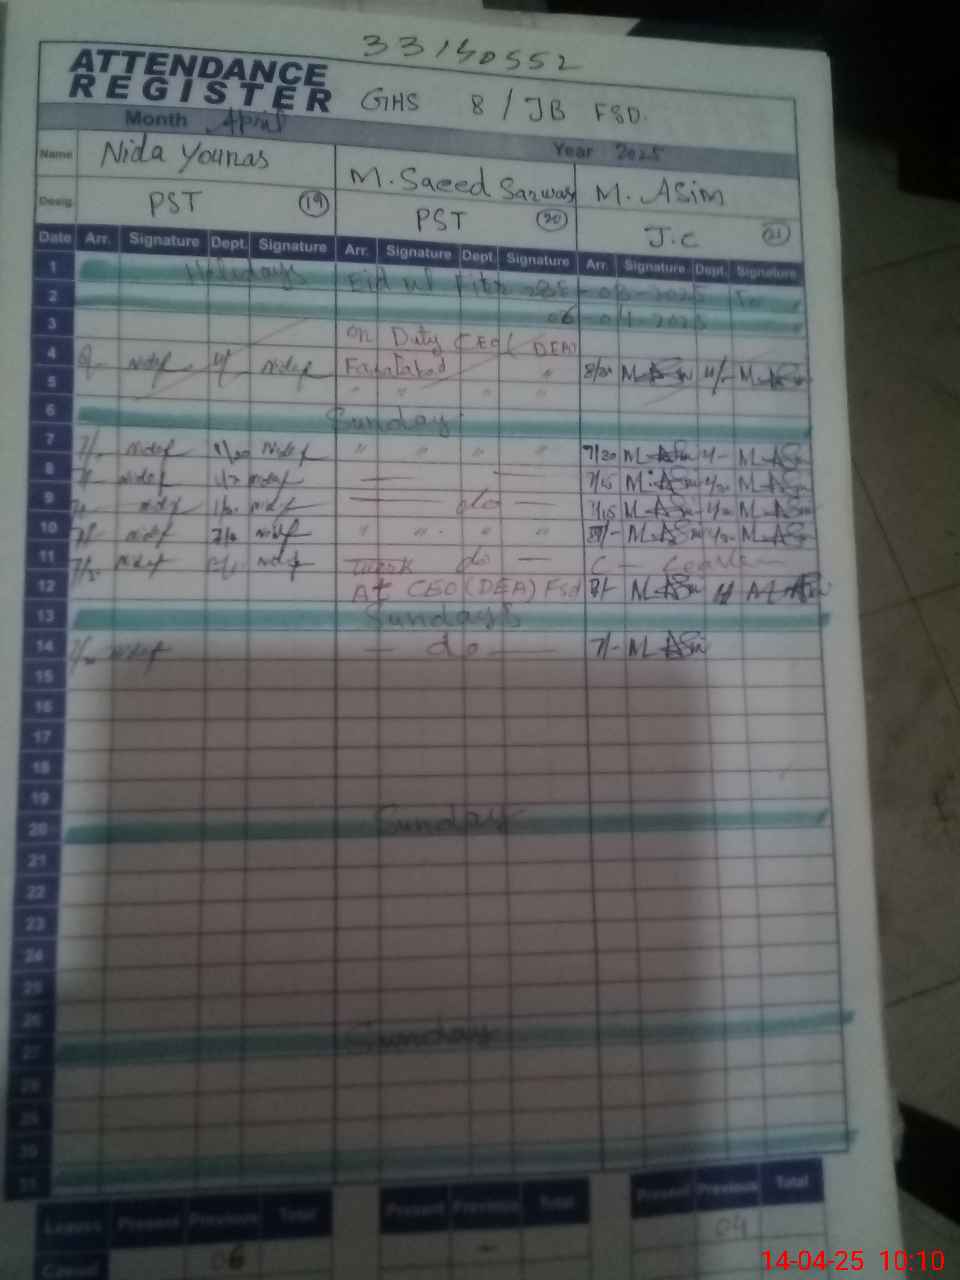 33140552
ATTENDANCE
REGISTER GHS 8/JB FSD.
Month April Year 2025
Name Nida Younas M. Saeed Sarwar M. Asim
Desig. PST 19 PST 20 J.C 21
Date Arr. Signature Dept. Signature Arr. Signature Dept. Signature Arr. Signature Dept. Signature
1 Holidays Eid ul Fitr 28 -03-2025 To
2 06-04-2025
3 On Duty CEO (DEA)
4 Nidaf Nidaf Faisalabad " 8/30 M-ASim M-ASim
5 " " " "
6 Sunday
7 Nidaf Nidaf " " " " 7/20 M-ASim M-ASim
8 Nidaf Nidaf 7/15 M-ASim M-ASim
9 Nidaf Nidaf do 7/15 M-ASim M-ASim
10 Nidaf Nidaf " " " " M-ASim M-ASim
11 Nidaf Nidaf do C - Leave -
12 At CEO (DEA) Fsd M-ASim
13 Sundays
14 Nidaf - do - 7/- M-ASim
15
16
17
18
19
20 Sunday
21
22
23
24
25
26
27 Sunday
28
29
30
31
Leaves Present Previous Total Present Previous Total Present Previous Total
Casual 06 - 04
14-04-25 10:10